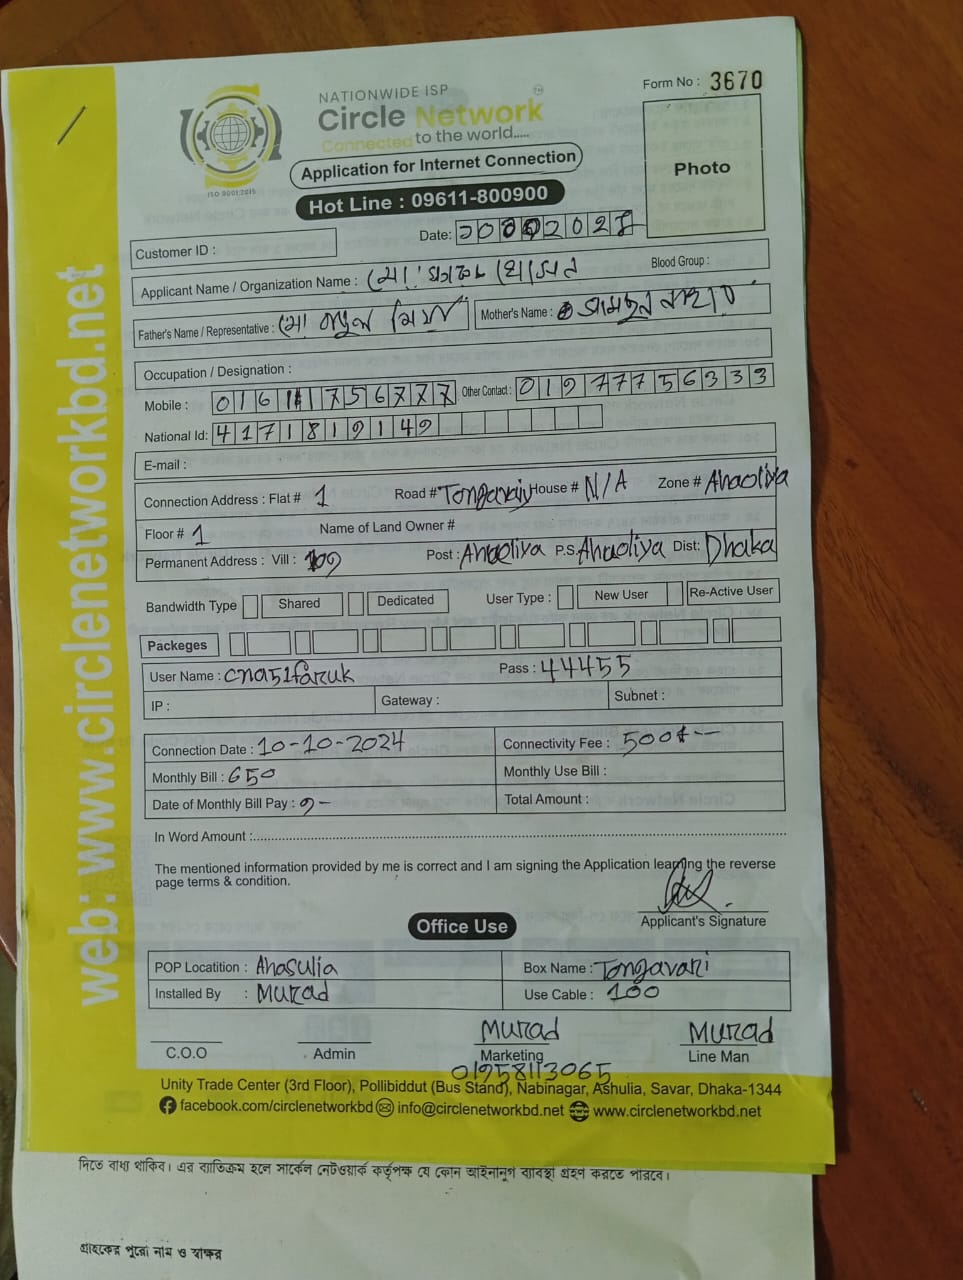 NATIONWIDE ISP
Circle Network
Connected to the world.....
ISO 9001:2015
Form No : 3670
Photo
Application for Internet Connection
Hot Line : 09611-800900
Date:
Customer ID :
Applicant Name / Organization Name : মো: ফারুক হোসেন Blood Group :
Father's Name / Representative : মো নুরুল মিয়া Mother's Name :
Occupation / Designation :
Mobile : 01611756777 Other Contact : 01977756333
National Id: 4171819149
E-mail :
Connection Address : Flat # 1 Road # Tongavaiy House # N/A Zone # Ahaoliya
Floor # 1 Name of Land Owner #
Permanent Address : Vill : Post : Ahaoliya P.S. Ahaoliya Dist: Dhaka
Bandwidth Type Shared Dedicated User Type : New User Re-Active User
Packeges
User Name : cna51faruk Pass : 44455
IP : Gateway : Subnet :
Connection Date : 10-10-2024 Connectivity Fee : 500
Monthly Bill : 650 Monthly Use Bill :
Date of Monthly Bill Pay : Total Amount :
In Word Amount :
The mentioned information provided by me is correct and I am signing the Application learning the reverse
page terms & condition.
Applicant's Signature
Office Use
POP Locatition : Ahasulia Box Name : Tongavari
Installed By : Murad Use Cable : 100
Murad Murad
C.O.O Admin Marketing Line Man
01958113065
Unity Trade Center (3rd Floor), Pollibiddut (Bus Stand), Nabinagar, Ashulia, Savar, Dhaka-1344
facebook.com/circlenetworkbd info@circlenetworkbd.net www.circlenetworkbd.net
web: www.circlenetworkbd.net
দিতে বাধ্য থাকিব। এর ব্যতিক্রম হলে সার্কেল নেটওয়ার্ক কর্তৃপক্ষ যে কোন আইনানুগ ব্যবস্থা গ্রহণ করতে পারবে।
গ্রাহকের পুরো নাম ও স্বাক্ষর